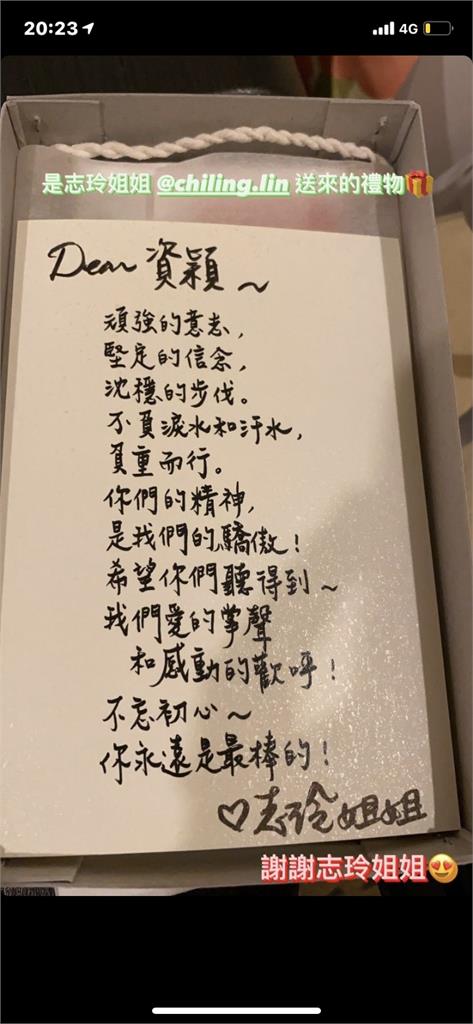 20:23
4G
是志玲姐姐 @chiling.lin 送來的禮物🎁
Dear 資穎～
頑強的意志，
堅定的信念，
沈穩的步伐。
不負淚水和汗水，
負重而行。
你們的精神，
是我們的驕傲！
希望你們聽得到～
我們愛的掌聲
和感動的歡呼！
不忘初心～
你永遠是最棒的！
♡志玲姐姐
謝謝志玲姐姐😍